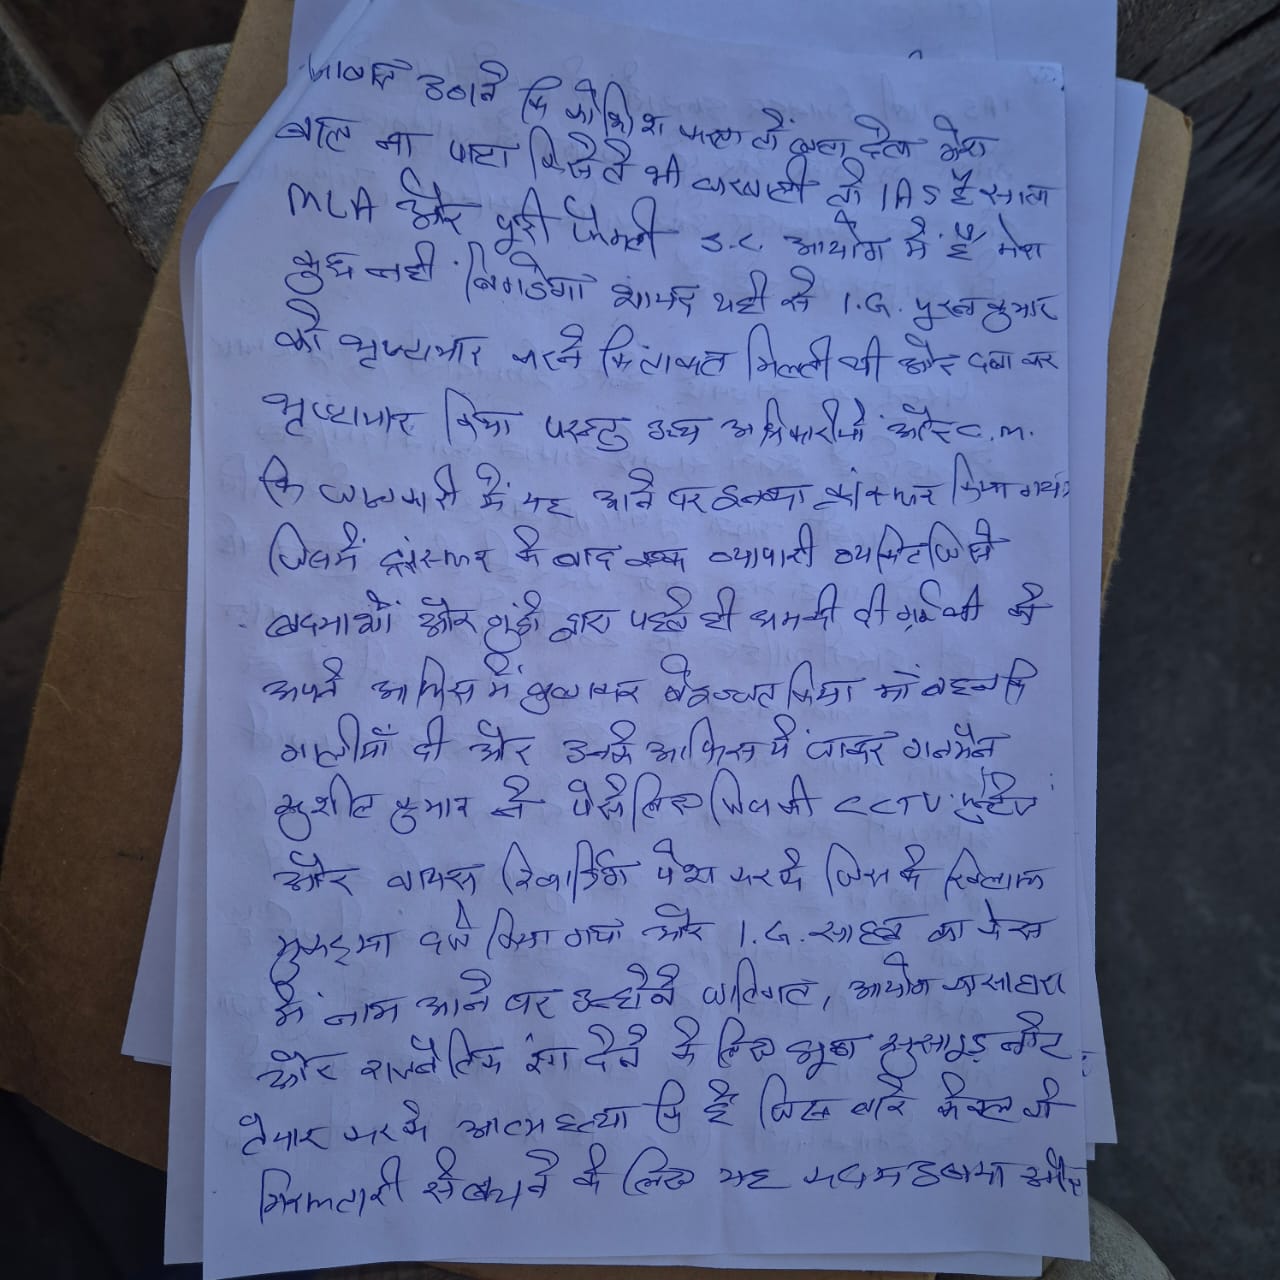 आवाज उठाने कि कोशिश करता तो कहा देता मेरा
बाल ना पाटा किसैते भी घरवाली तो IAS है साला
MLA और पूरी फैमली S.C. आयोग में है मेरा
कुछ नही बिगडेगा शायद यही से I.G. पुरन कुमार
को भृष्टाचार करने कि ताकत मिलती थी और दबा कर
भृष्टाचार किया परन्तु उच्च अधिकारीयों और C.M.
कि जानकारी में यह आने पर इनका ट्रांसफर किया गया
जिसमें ट्रांसफर के बाद एक व्यापारी व्यक्ति जिसे
बदमाशों और गुंडो द्वारा पहले ही धमकी दी गई थी को
अपने आफिस में बुलाकर बेइज्जत किया माँ बहन कि
गालीयाँ दी और उनके आफिस पे जाकर गनमैन
सुशील कुमार ने पैसे लिए जिसकी CCTV फुटेज
और वायस रिकार्डिंग पेश करके जिस के खिलाफ
मुकदमा दर्ज किया गया और I.G. साहब का केस
में नाम आने पर उन्होंने जातिगत, आयोग का सहारा
और राजनैतिक रंग देने के लिए झूठा सुसाइड नोट
तैयार करके आत्महत्या कि है जिस बारे केवल की
गिरफ्तारी से बचने के लिए यह कदम उठाया और